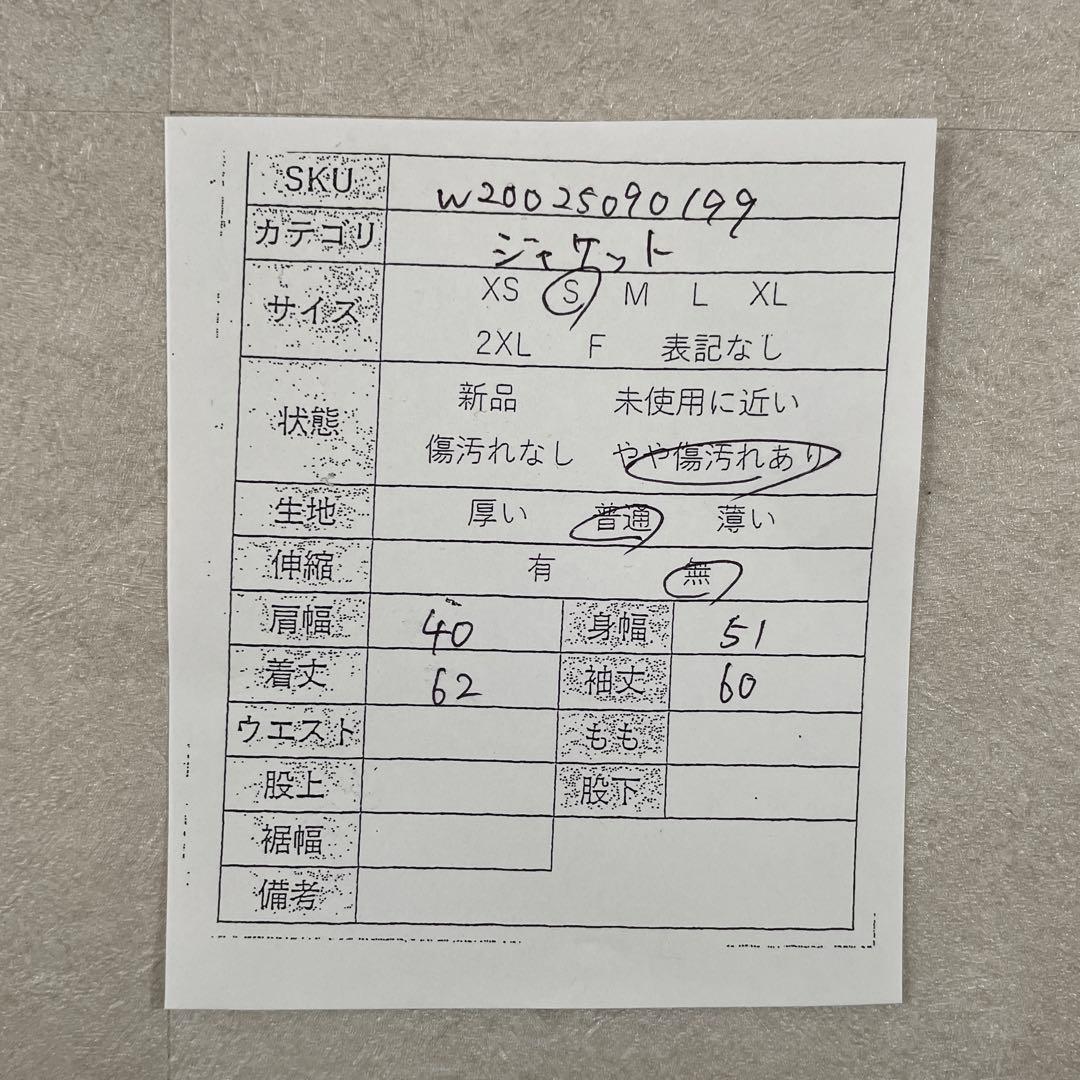 SKU w20025090199
カテゴリ ジャケット
サイズ XS S M L XL
2XL F 表記なし
状態 新品 未使用に近い
傷汚れなし やや傷汚れあり
生地 厚い 普通 薄い
伸縮 有 無
肩幅 40 身幅 51
着丈 62 袖丈 60
ウエスト もも
股上 股下
裾幅
備考